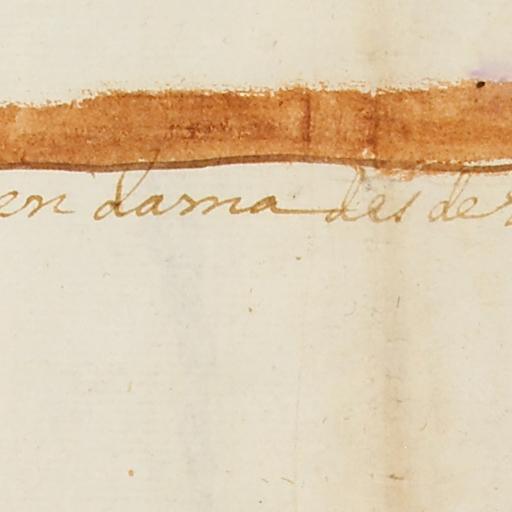 en dama des de